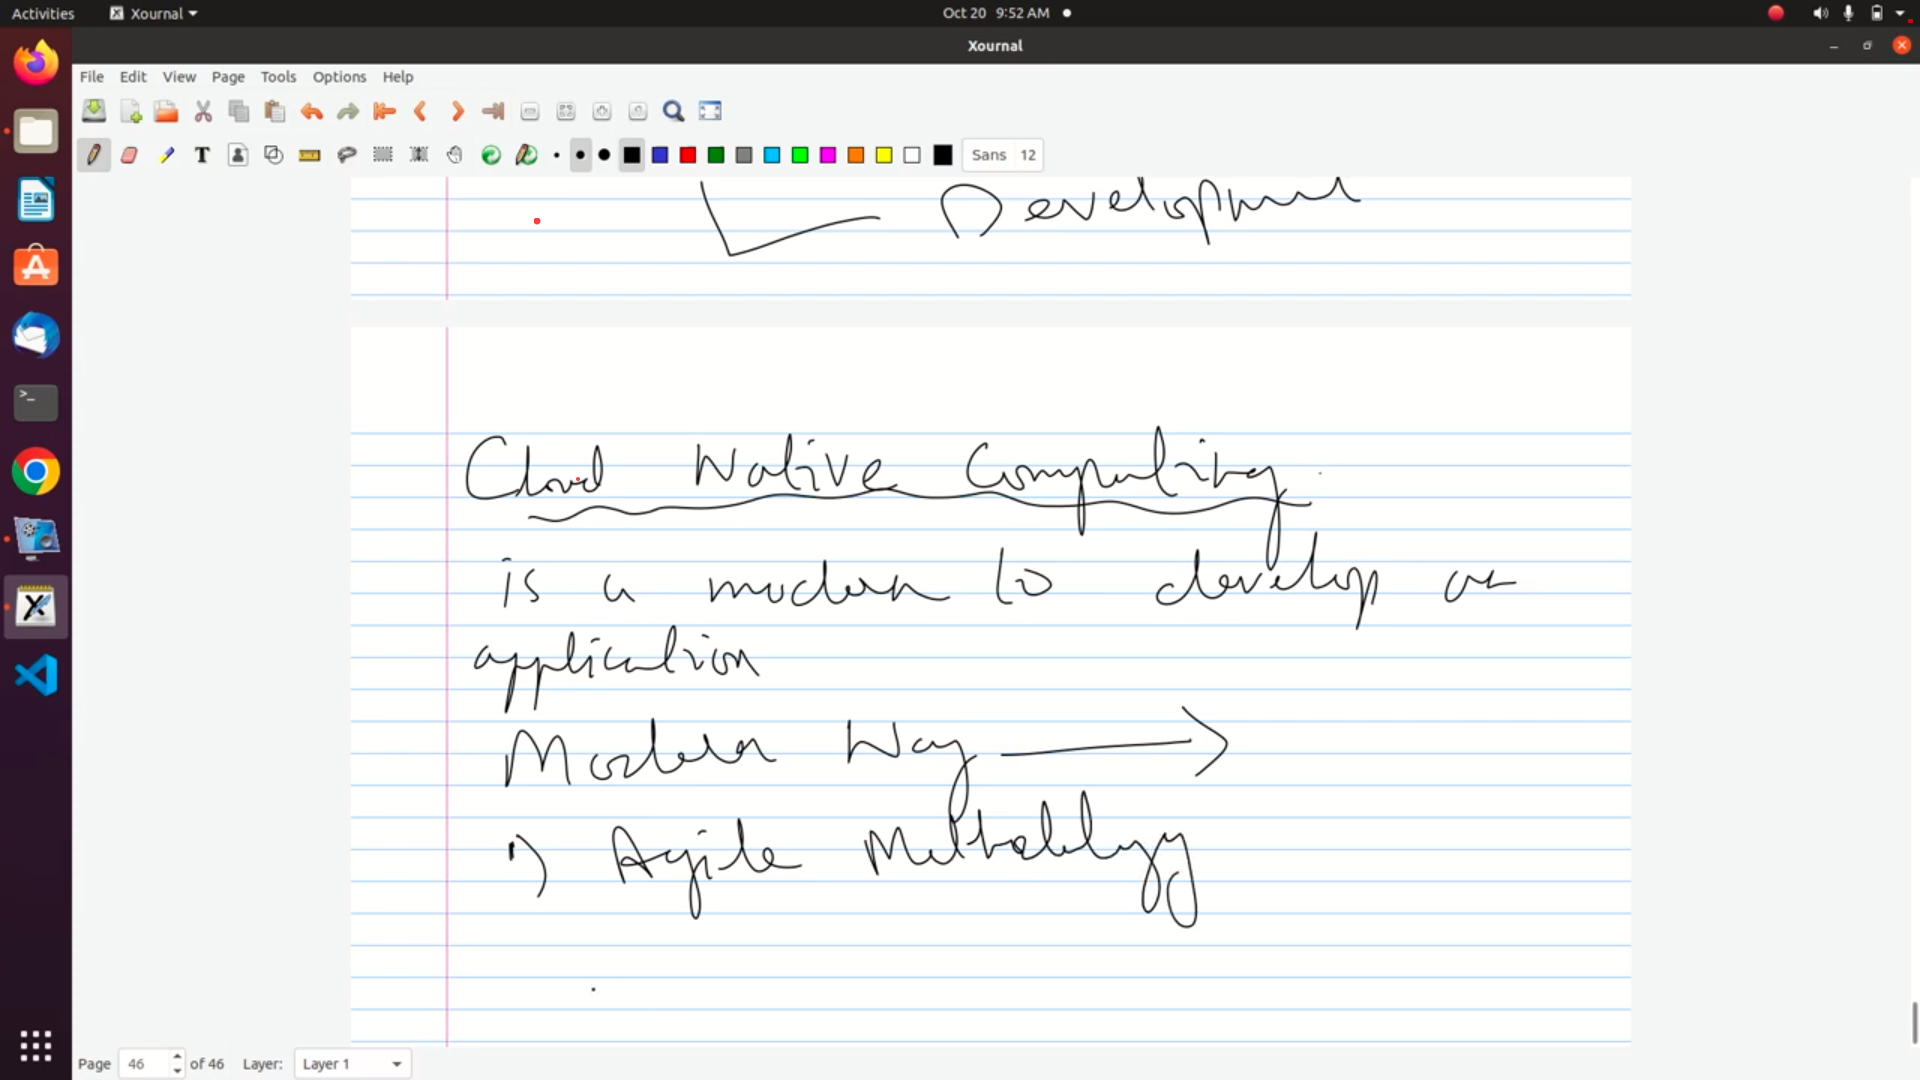 Activities Xournal Oct 20 9:52 AM
Xournal
File Edit View Page Tools Options Help
T Sans 12
Development
Cloud Native Computing
is a modern to develop an
application
Modern Way
1) Agile Methodology
Page 46 of 46 Layer: Layer 1